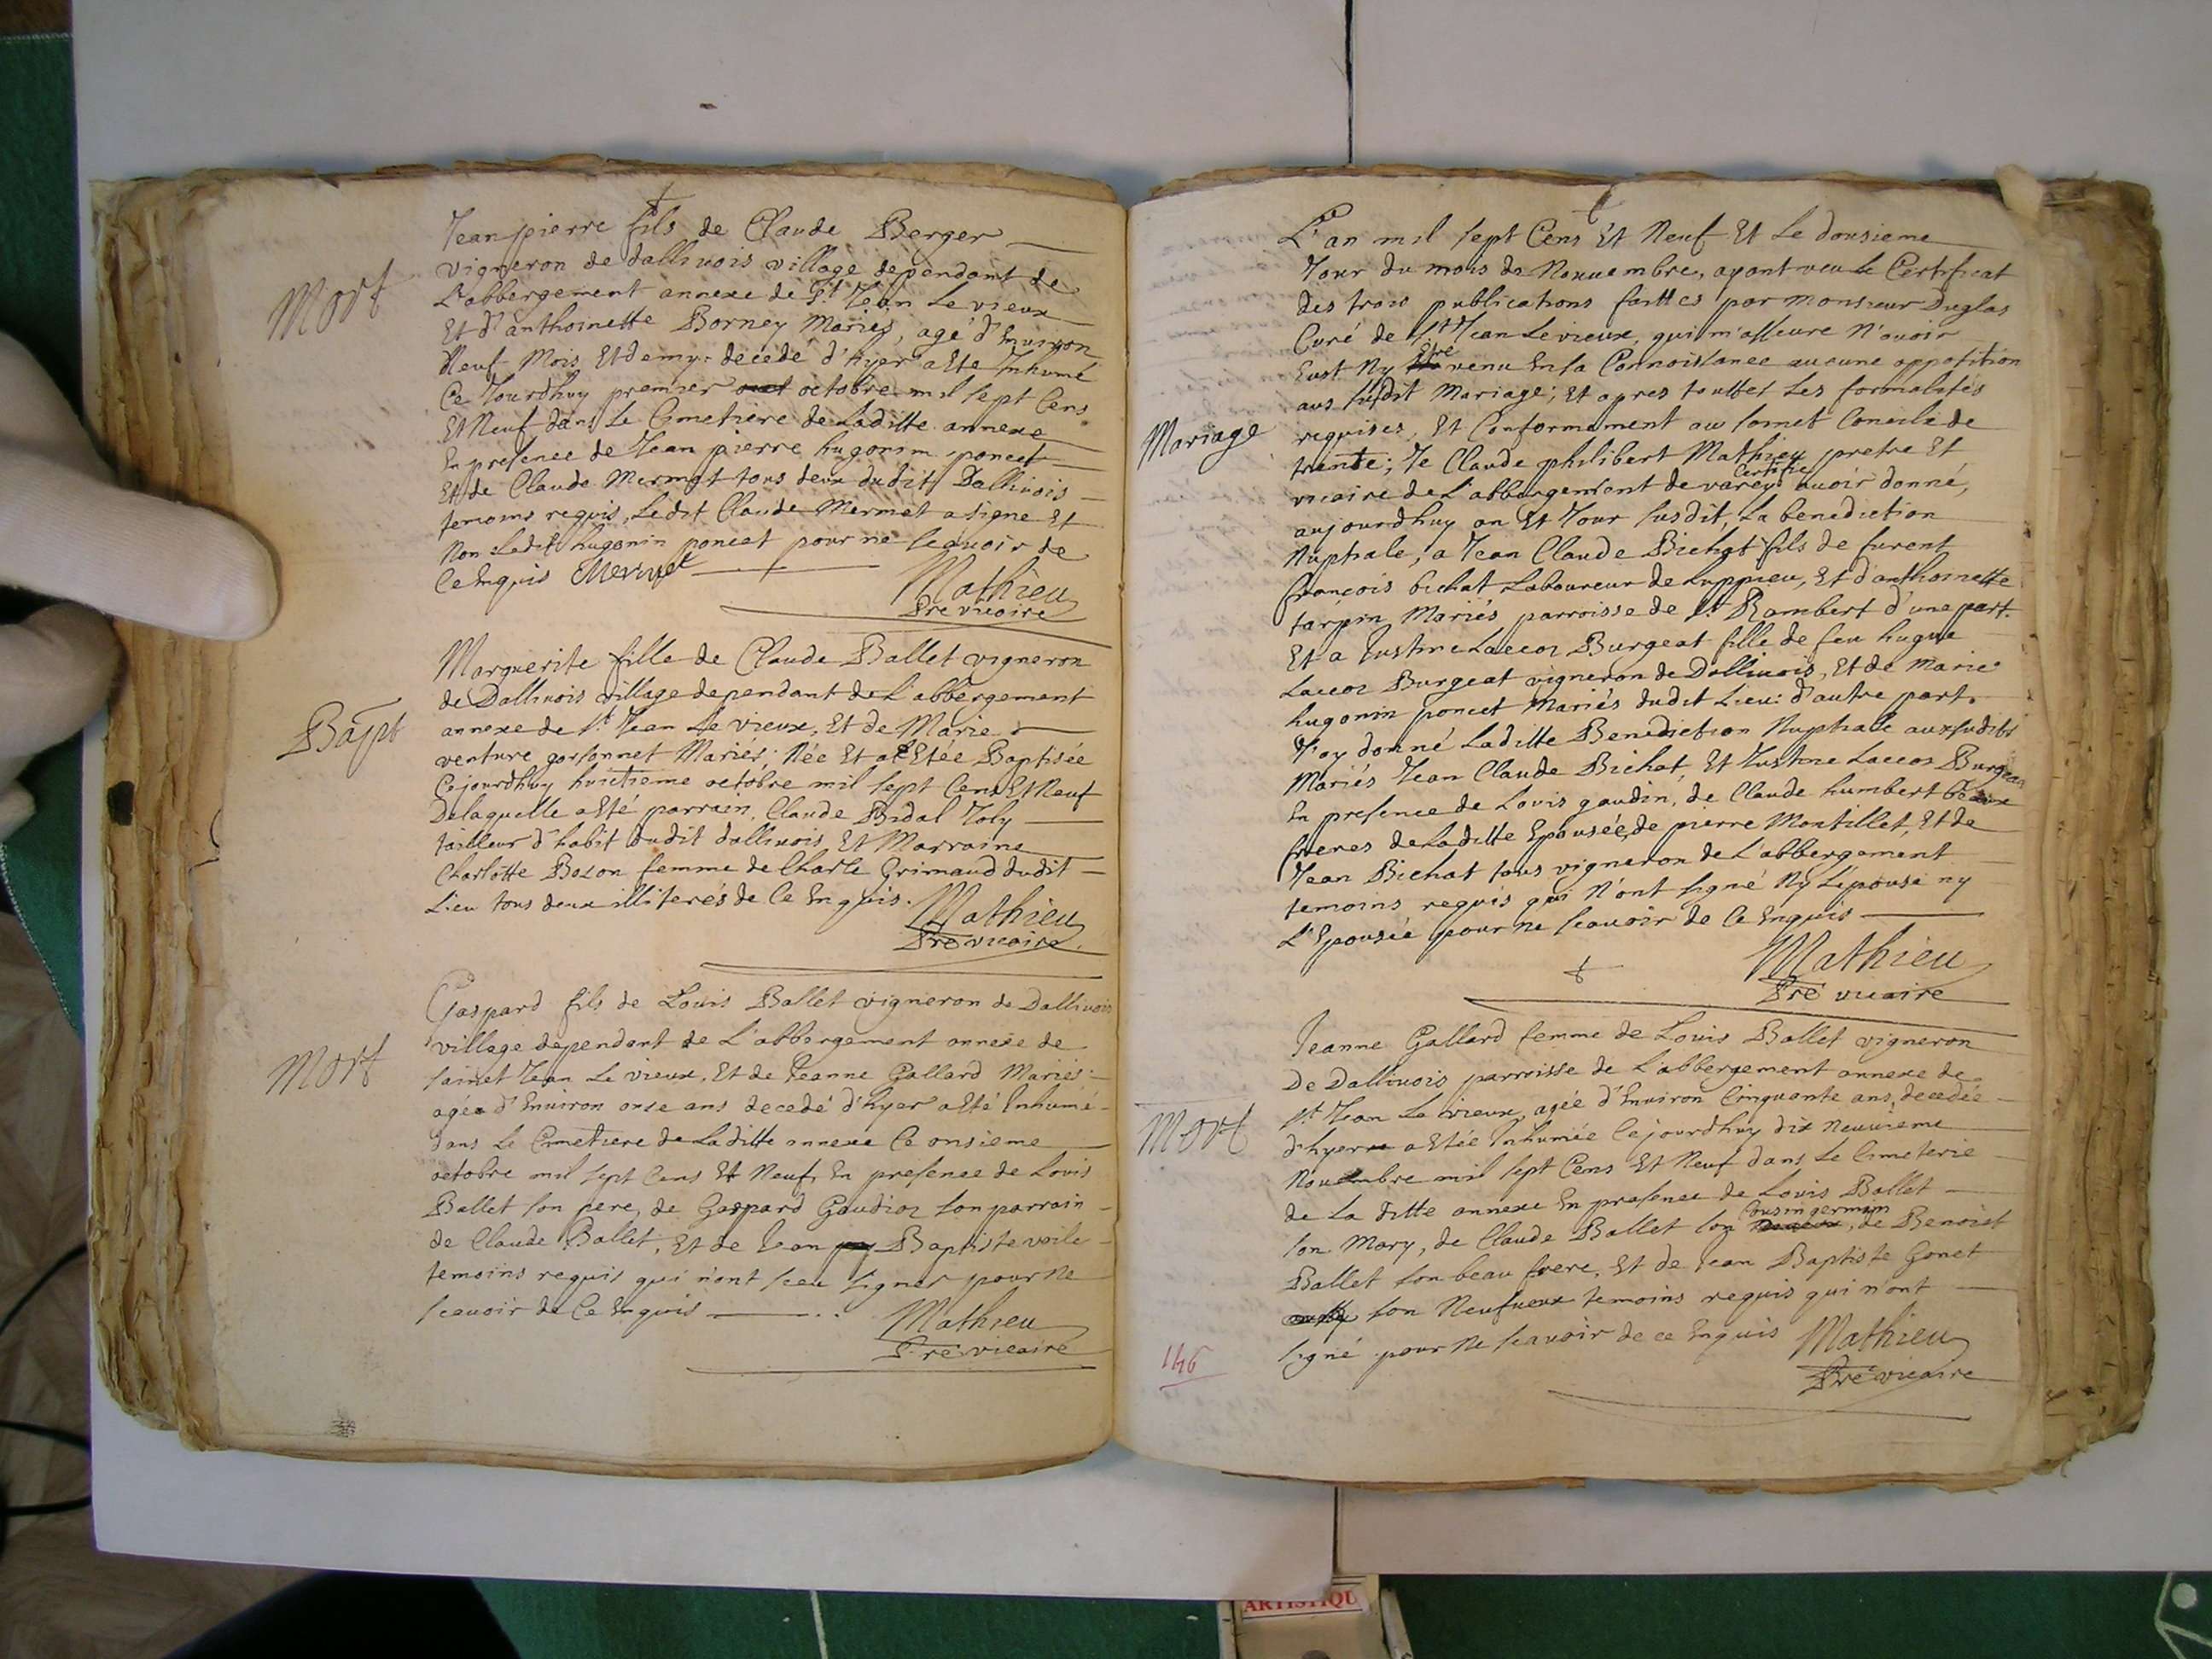 Mort
Jean pierre fils de Claude Berger
vigneron de dallinois village dependant de
L'abbergement annexe de St Jean Le vieux
Et d'anthoinette Borney Mariés, agé d'Enuiron
Neuf Mois Et demy, decedé d'hyer a Eté Inhumé
Ce Jourdhuy premier octobre mil sept Cens
Et Neuf dans Le Cimetiere de Laditte annexe
En presence de Jean pierre hugonin poncet
Et de Claude Mermet tous deux dudit Dallinois
temoins requis, Ledit Claude Mermet a signé Et
Non Ledit hugonin poncet pour ne scauoir de
Ce Enquis Mermet
Mathieu
Pre vicaire
Bapt
Marguerite fille de Claude Ballet vigneron
de Dallinois village dependant de L'abbergement
annexe de St Jean Le vieux, Et de Marie
venture gossonnet Mariés; Née Et a Etée Baptisée
Cejourdhuy huictieme octobre mil sept Cens Et Neuf
De laquelle a Eté parrain, Claude Bidal Joly
tailleur d'habit dudit dallinois Et Marraine
Charlotte Bozon femme de Charle Grimaud dudit
Lieu tous deux illiterés de Ce Enquis.
Mathieu
Pre vicaire
Mort
Gaspard fils de Louis Ballet vigneron de Dallinois
village dependant de L'abbergement annexe de
sainct Jean Le vieux, Et de Jeanne Gallard Mariés
agé d'Enuiron onze ans decedé d'hyer a Eté Inhumé
dans Le Cimetiere de Laditte annexe Ce onsieme
octobre mil sept Cens Et Neuf, En presence de Louis
Ballet son pere, de Gaspard Gaudioz son parrain
de Claude Ballet, Et de Jean Baptiste voile
temoins requis qui n'ont sceu signer pour Ne
scauoir de Ce Enquis
Mathieu
Pre vicaire
Mariage
L'an mil sept Cens Et Neuf Et Le dousieme
Jour du mois de Nouuembre, ayant veu Le Certificat
des trois publications faittes par Monsieur Duglas
Curé de St Jean Le vieux, qui m'asseure N'auoir
Eust Ny Etre venu En sa Connoissance aucune opposition
aus susdit Mariage; Et apres touttes Les formalités
requises, Et Conformement au sainct Concile de
trente; Je Claude philibert Mathieu pretre Et
vicaire de L'abbergement de varey Certifie auoir donné,
aujourdhuy an Et Jour susdit, La benediction
Nuptiale, a Jean Claude Bichat fils de furent
françois bichat Laboureur de Luppieu, Et d'anthoinette
tarpin Mariés parroisse de St Rambert d'une part.
Et a Justine Laccoz Burgeat fille de feu hugue
Laccoz Burgeat vigneron de Dallinois, Et de Marie
hugonin poncet Mariés dudit Lieu: d'autre part.
J'ay donné Laditte Benediction Nuptiale auxsudits
Mariés Jean Claude Bichat, Et Justine Laccoz Burgeat
En presence de Louis gaudin, de Claude humbert beaux
freres de Laditte Epousée, de pierre Montillet, Et de
Jean Bichat tous vigneron de L'abbergement
temoins requis qui N'ont signé Ny L'epouse ny
L'Epousée pour ne scauoir de Ce Enquis
Mathieu
Pre vicaire
Mort
Jeanne Gallard femme de Louis Ballet vigneron
De Dallinois parroisse de L'abbergement annexe de
St Jean Le vieux, agée d'Enuiron Cinquante ans, decedée
d'hyer a Etée Inhumée Cejourdhuy dix Neuuieme
Nouembre mil sept Cens Et Neuf dans Le Cimeterie
de La ditte annexe En presence de Louis Ballet
son Mary, de Claude Ballet son Cousin germain, de Benoist
Ballet son beau frere, Et de Jean Baptiste Gonet
son Neufueux temoins requis qui n'ont
signé pour Ne scauoir de ce Enquis
Mathieu
Pre vicaire
146
ARTISTIQU